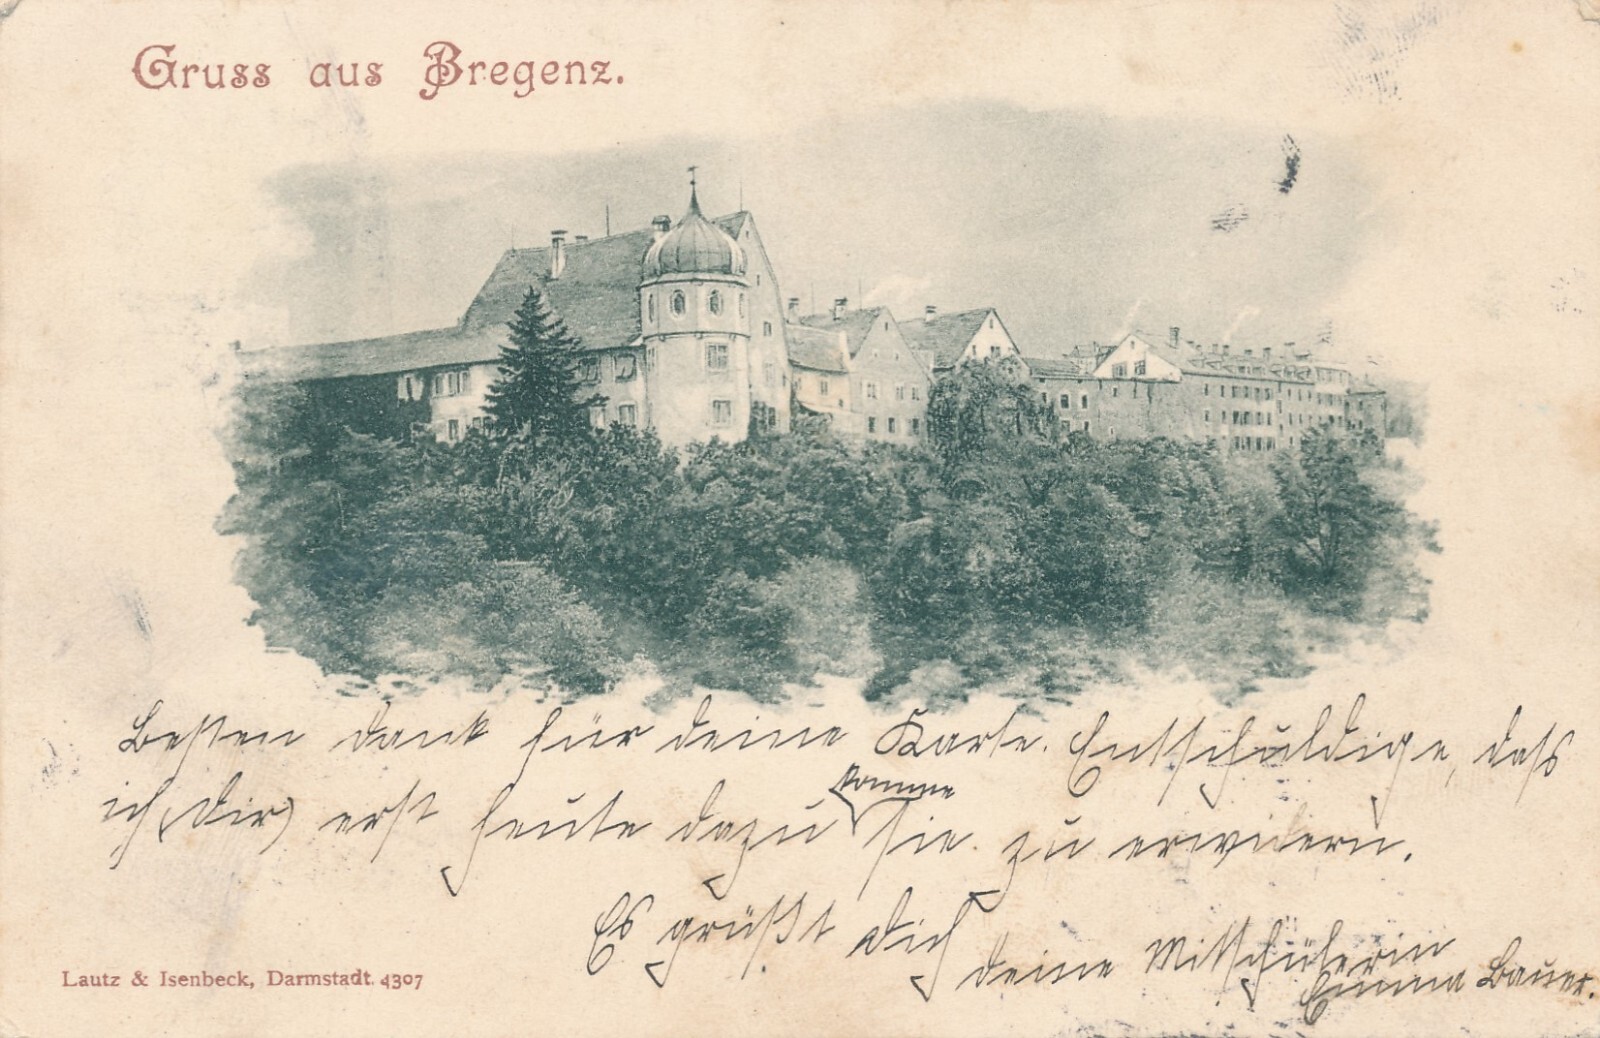 Gruss aus Bregenz.
Besten Dank für deine Karte. Entschuldige, dass
ich (dir) erst heute dazu komme sie zu erwidern.
Es grüßt dich
deine Mitschülerin
Emma Bauer.
Lautz & Isenbeck, Darmstadt. 4307